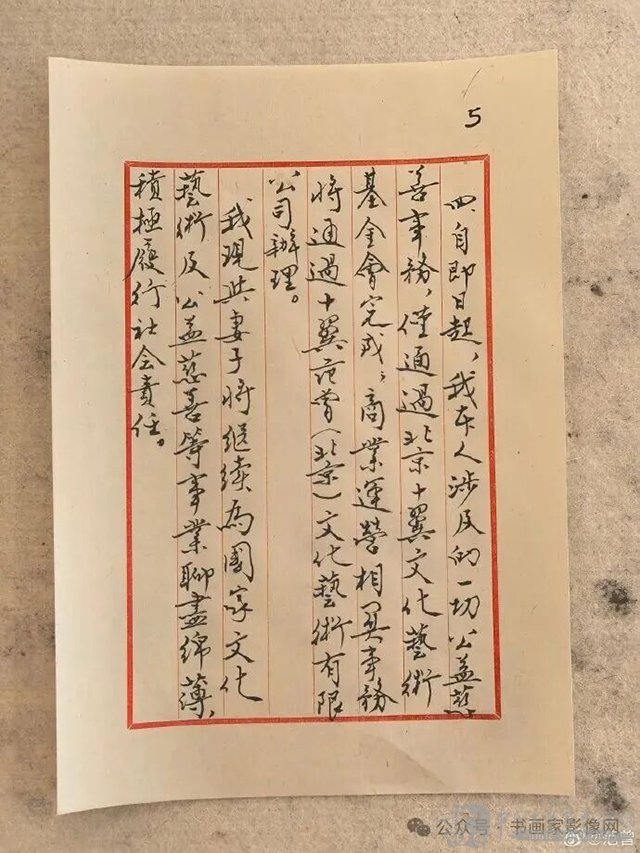 5
四、自即日起，我本人涉及的一切公益慈
善事务，僅通過北京十翼文化藝術
基金會完成；商業運營相關事務
将通過十翼范曾（北京）文化藝術有限
公司辦理。
我現與妻子将继续為國家文化
藝術及公益慈善等事業聊盡绵薄，
積極履行社会責任。
公众号·书画家影像网
@范曾